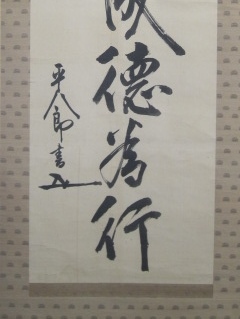 成德為行
平八郎書